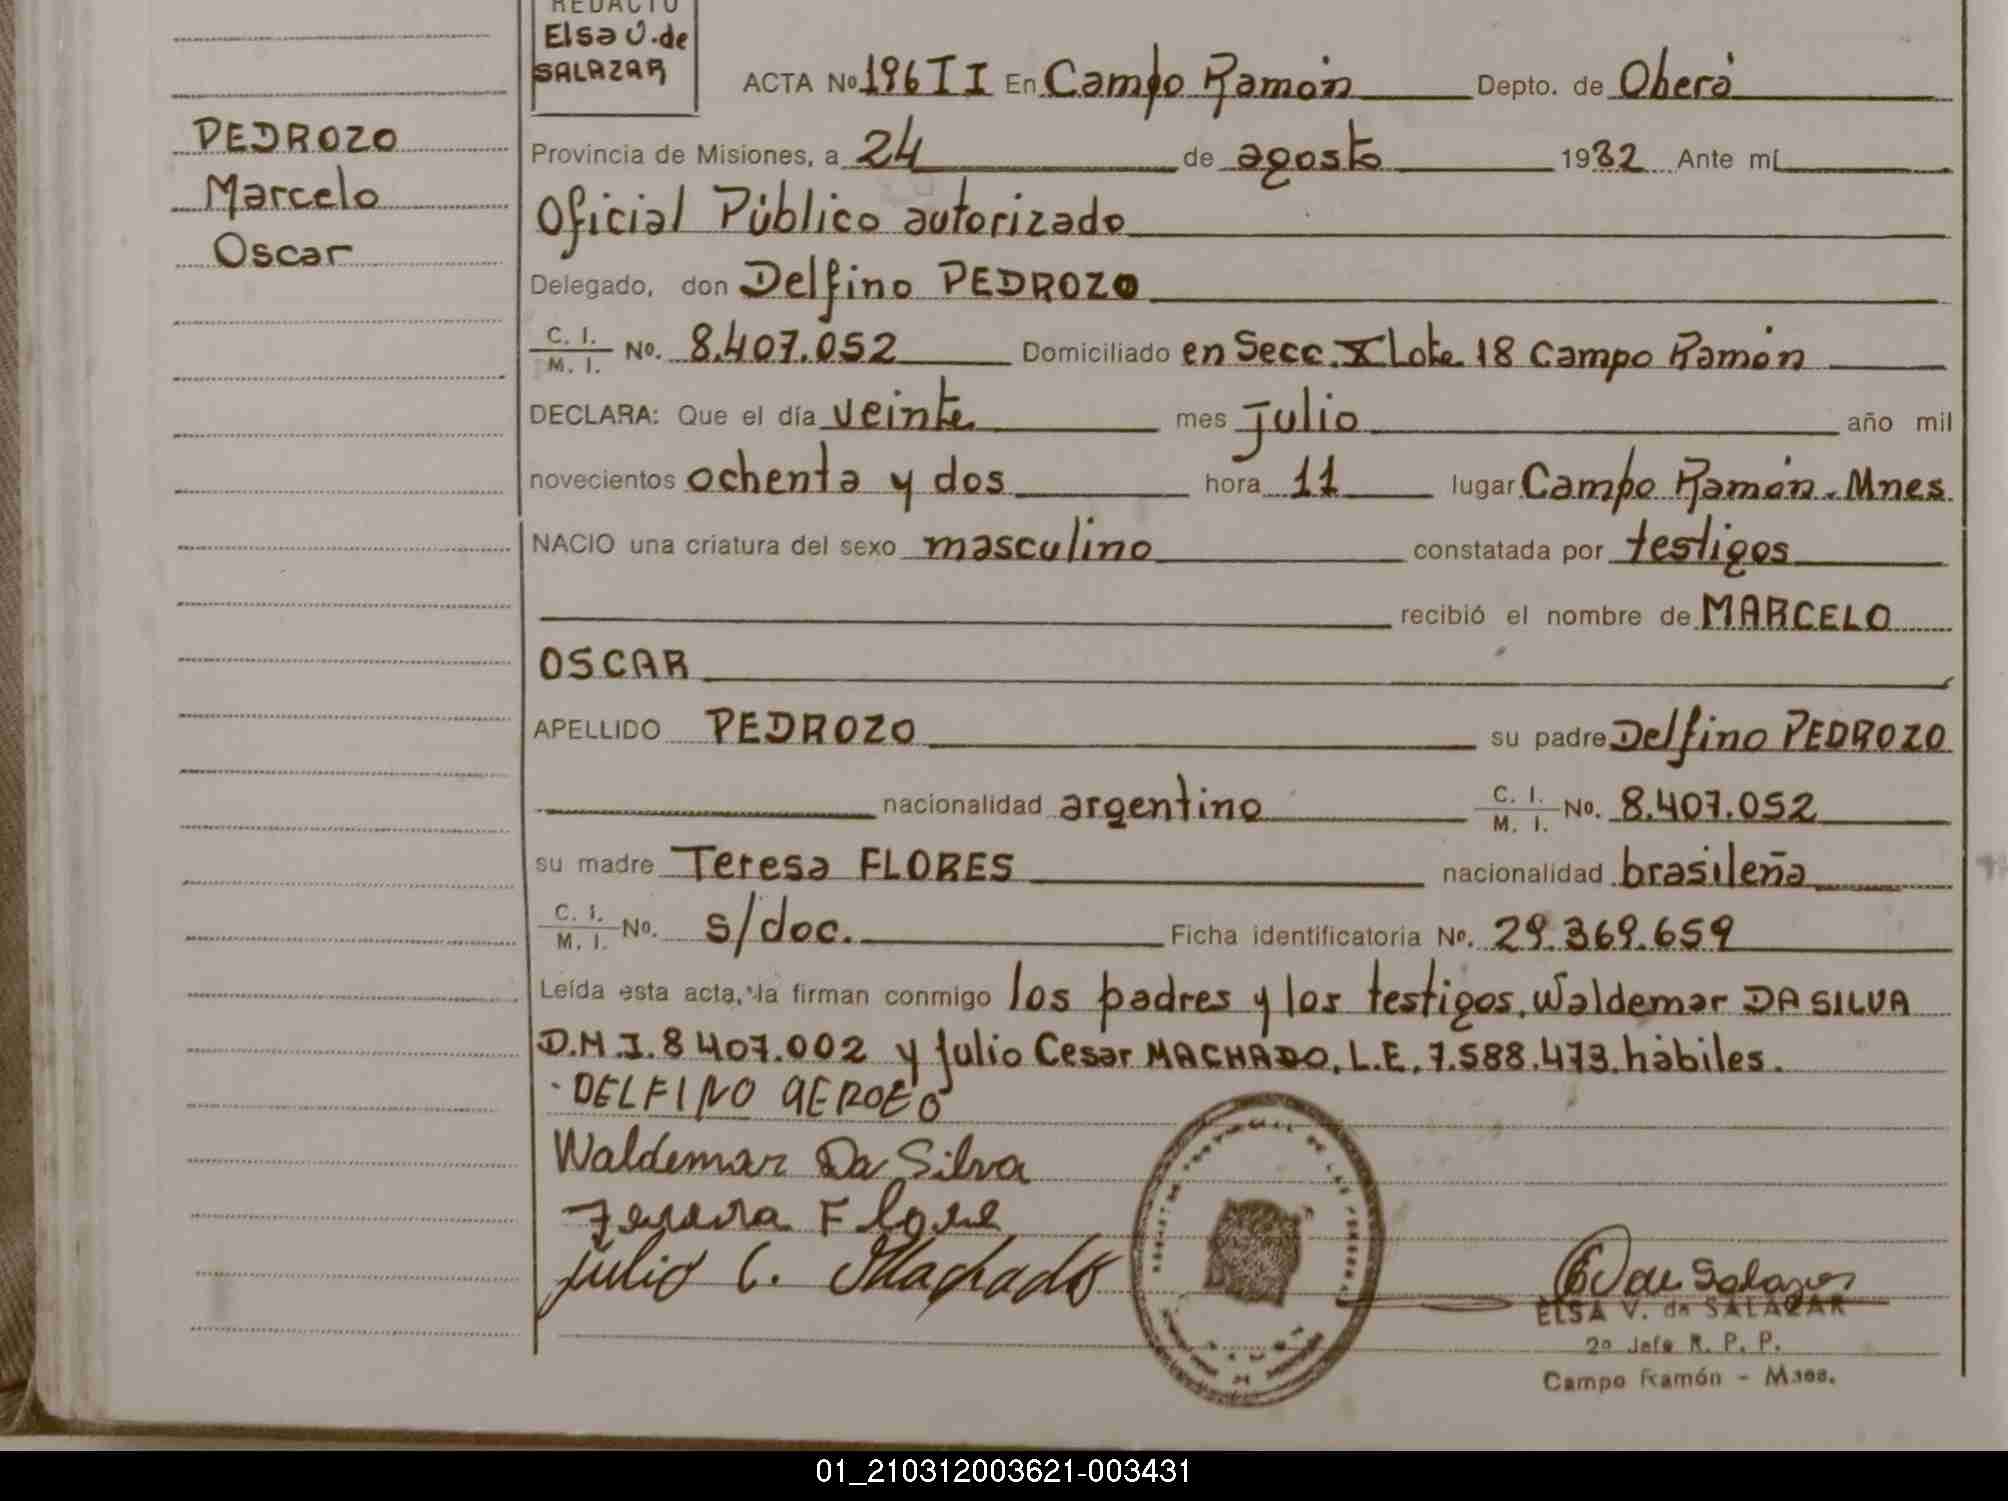 REDACTO
Elsa V. de
SALAZAR
ACTA Nº 196 II En Campo Ramón Depto. de Oberá
PEDROZO
Marcelo
Oscar
Provincia de Misiones, a 24 de agosto 1982 Ante mí
Oficial Público autorizado
Delegado, don Delfino PEDROZO
C. I. / M. I. No. 8.407.052 Domiciliado en Secc. X Lote 18 Campo Ramón
DECLARA: Que el día veinte mes julio año mil
novecientos ochenta y dos hora 11 lugar Campo Ramón. Mnes.
NACIO una criatura del sexo masculino constatada por testigos
recibió el nombre de MARCELO
OSCAR
APELLIDO PEDROZO su padre Delfino PEDROZO
nacionalidad argentino C. I. / M. I. No. 8.407.052
su madre Teresa FLORES nacionalidad brasileña
C. I. / M. I. No. s/doc. Ficha identificatoria No. 29.369.659
Leída esta acta, la firman conmigo los padres y los testigos. Waldemar DA SILVA
D.N.I. 8 407.002 y Julio Cesar MACHADO. L.E. 7.588.473. hábiles.
DELFINO
Waldemar Da Silva
Flore
Julio C. Machado
E V de Salazar
ELSA V. de SALAZAR
2º Jefe R. P. P.
Campo Ramón - Mnes.
01_210312003621-003431